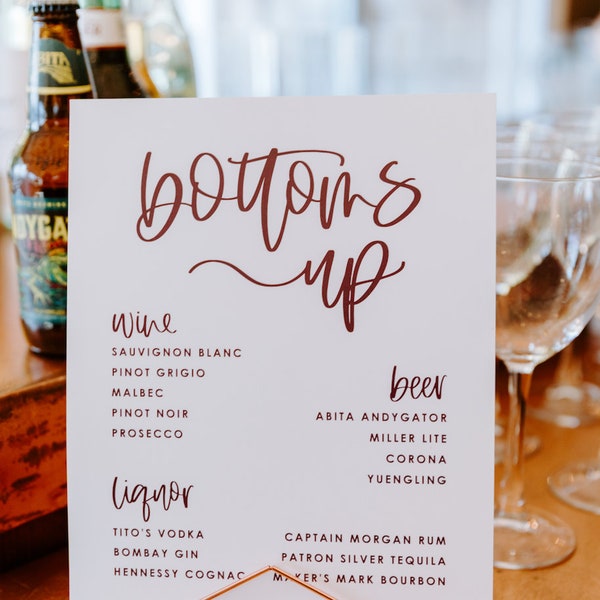 bottoms
up
wine
SAUVIGNON BLANC
PINOT GRIGIO
MALBEC
PINOT NOIR
PROSECCO
beer
ABITA ANDYGATOR
MILLER LITE
CORONA
YUENGLING
liquor
TITO'S VODKA
BOMBAY GIN
HENNESSY COGNAC
CAPTAIN MORGAN RUM
PATRON SILVER TEQUILA
MAKER'S MARK BOURBON